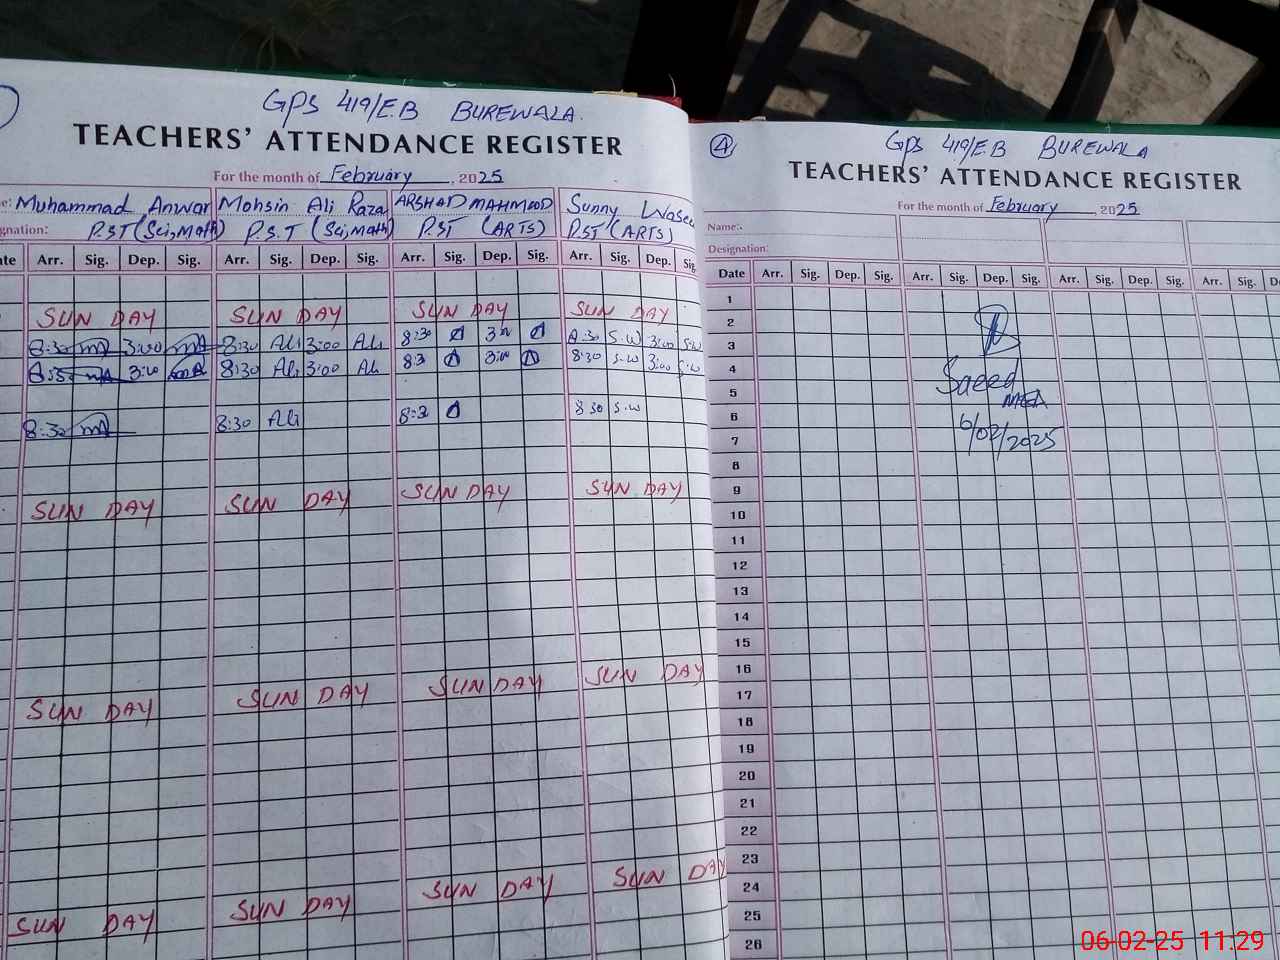 GPS 419/E.B BUREWALA.
TEACHERS' ATTENDANCE REGISTER
For the month of February, 2025
Muhammad Anwar Mohsin Ali Raza ARSHAD MAHMOOD Sunny
gnation: P.ST (Sci,Math) P.S.T (Sci,Math) PST (ARTS) PST (ARTS)
ate Arr. Sig. Dep. Sig. Arr. Sig. Dep. Sig. Arr. Sig. Dep. Sig. Arr. Sig. Dep. Sig.
SUN DAY SUN DAY SUN DAY SUN DAY
8:30 mA 3:00 mA 8:30 Ali 3:00 Ali 8:30 3:00 8:30 S.W 3:00 S.W
mA 3:00 mA 8:30 Ali 3:00 Ali 8:3 3:00 8:30 S.W 3:00 S.W
8:30 mA 8:30 Ali 8:3 8 30 S.W
SUN DAY SUN DAY SUN DAY SUN DAY
SUN DAY SUN DAY SUN DAY SUN DAY
SUN DAY SUN DAY SUN DAY SUN DAY
4
GPS 419/E.B BUREWALA
TEACHERS' ATTENDANCE REGISTER
For the month of February 2025
Name:.
Designation:
Date Arr. Sig. Dep. Sig. Arr. Sig. Dep. Sig. Arr. Sig. Dep. Sig. Arr. Sig. De
1
2
3
4
5
6
7
8
9
10
11
12
13
14
15
16
17
18
19
20
21
22
23
24
25
26
Saeed
MEA
6/02/2025
06-02-25 11.29